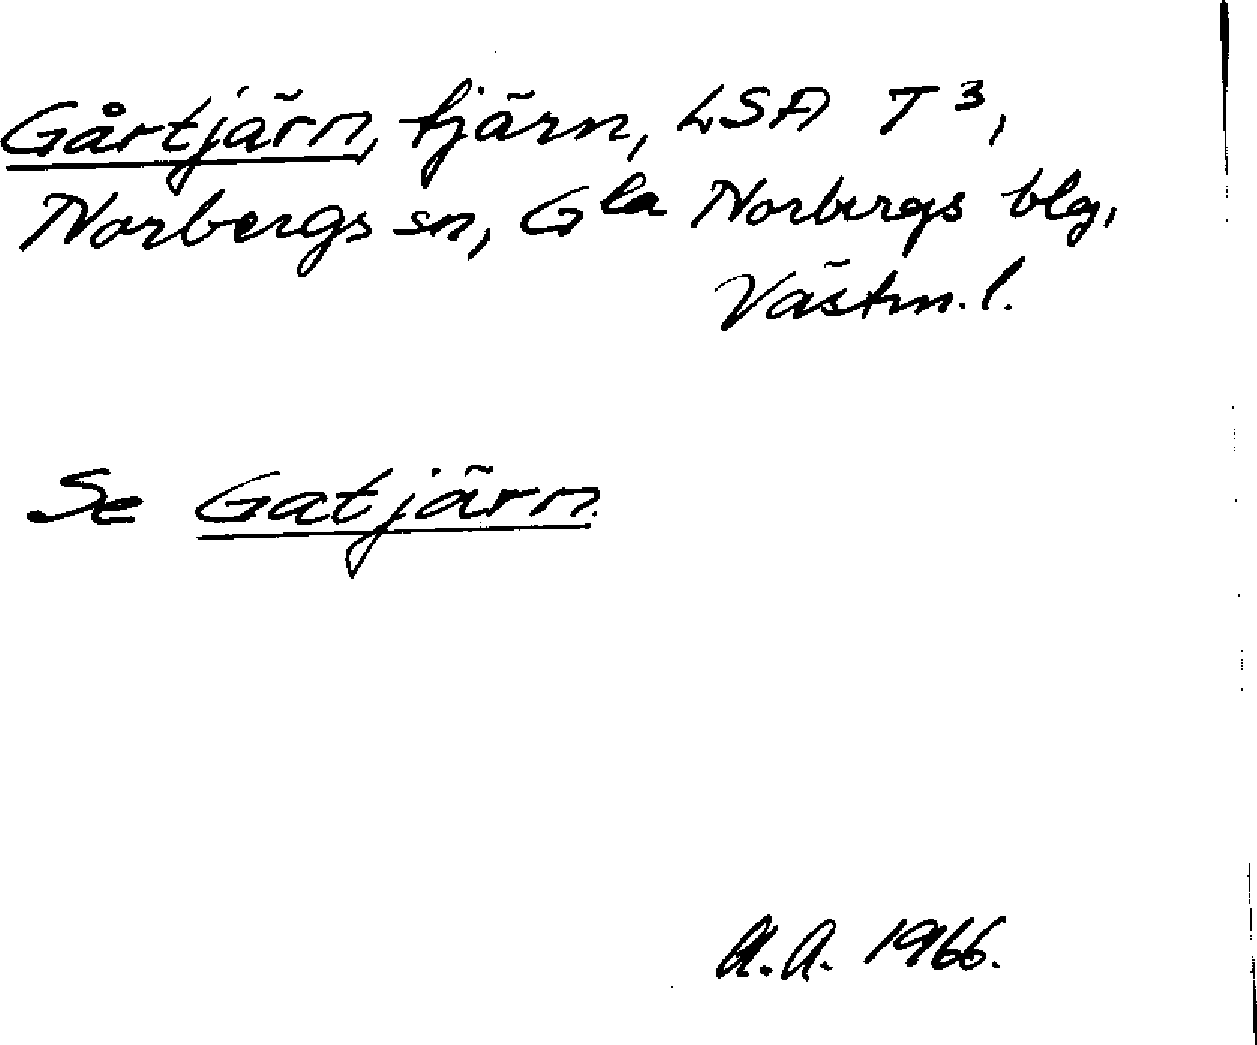 Gårtjärn, tjärn, LSA T³,
Norbergs sn, Gla Norbergs blg,
Västm. l.
Se Gatjärn.
A.A. 1966.